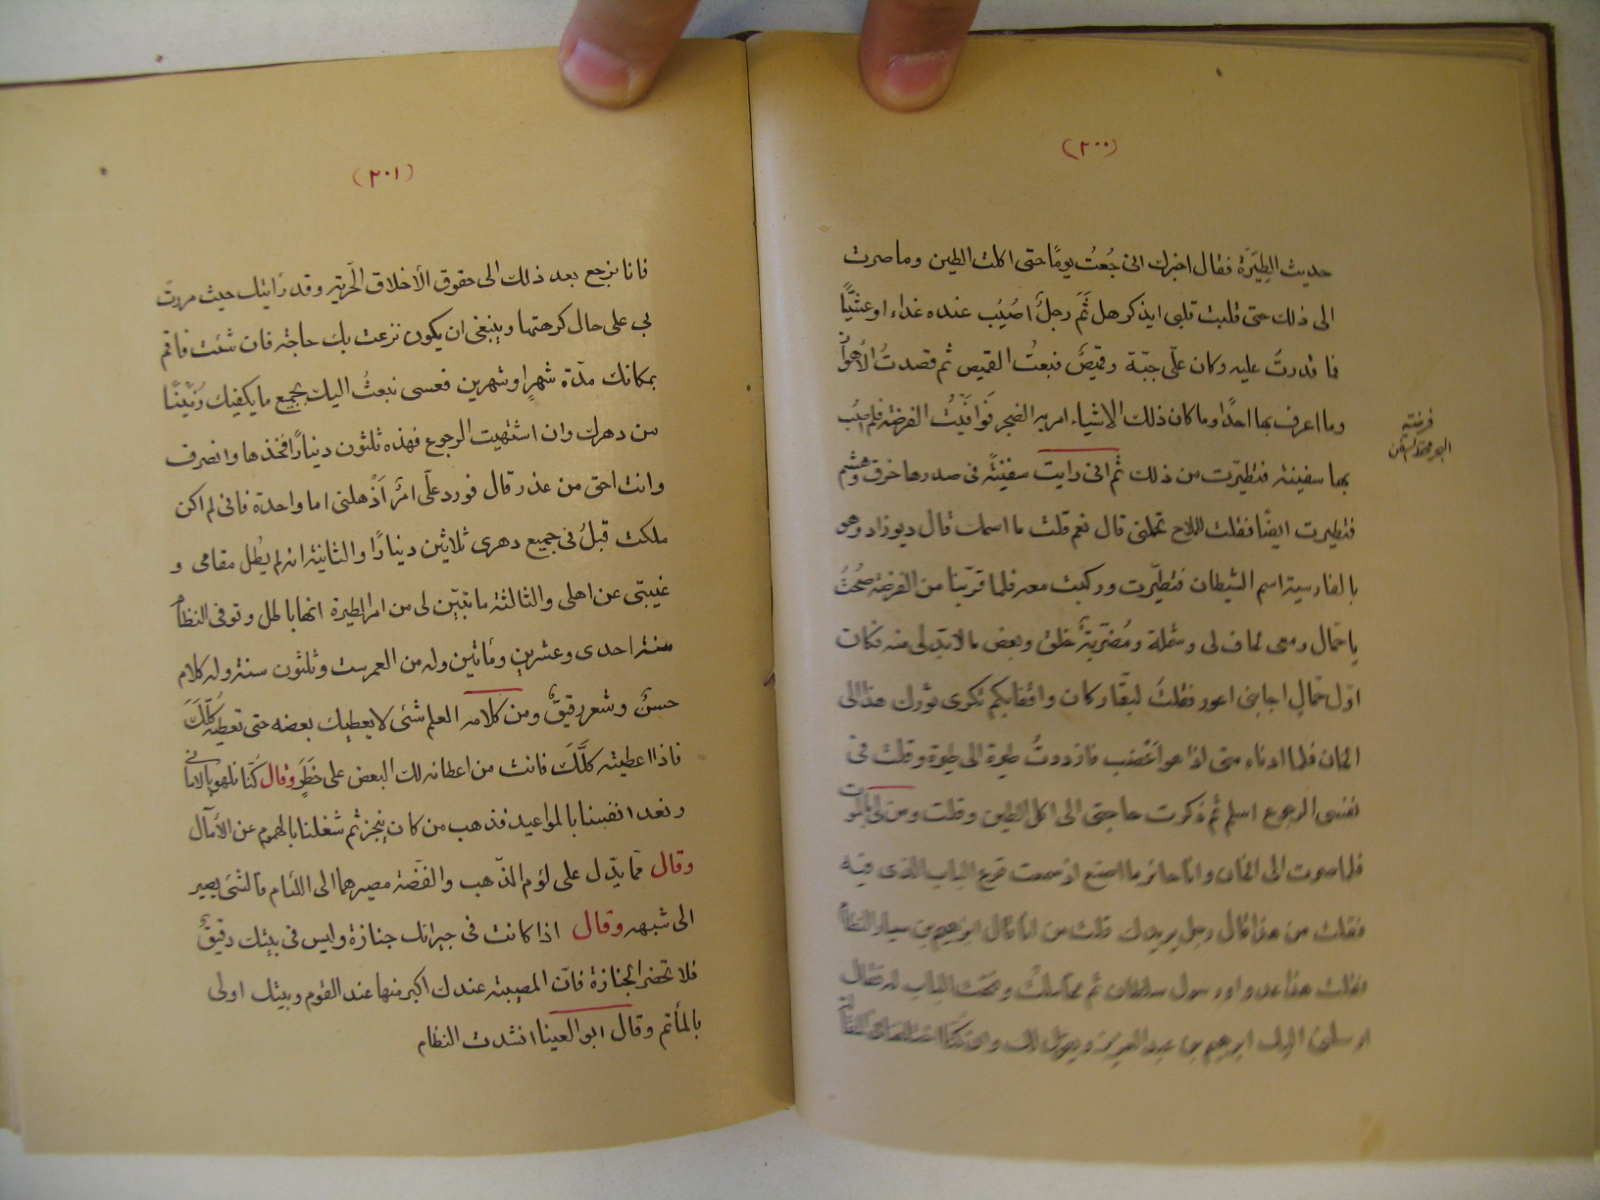 (٢٠٠)
حديث الطِيَرَة فقال اخبرك انى جُعتُ يومًا حتى اكلت الطين وما صرت
الى ذلك حتى قلبت قلبى ايذكر هل ثَمَّ رجلٌ اصيُب عنده غداء او عشيًّا
فما قدرتُ عليه وكان علّى جبّة وقميصٌ فبعتُ القميص ثم قصدتُ الأهواز
وما اعرف بها احدًا وما كان ذلك الاشياء امر به الضجر فَوافَيْتُ الفرضة فلم اصب
فرضة
البحر محط السفن
بها سفينة فتطيّرت من ذلك ثم انى رايت سفينةً فى صدرها خرق وهشم
فتطيرت ايضًا فقلت للملاح تحملنى قال نعم قلت ما اسمك قال ديوزاد وهو
بالفارسية اسم الشيطان فتطيّرت وركبت معه فلما قربنا من الفرضة صحُتُ
يا حمّال ومعى لحاف لى وشملة ومُضَرَّبَةٌ خلق وبعض ما لابدّ لى منه فكان
اوّل حمّالٍ اجابنى اعور فقلتُ لبقّار كان واقفا بكم تكرى ثورك هذا الى
الخان فلما ادناه منى اذا هو اَعْضَب فازددتُ طيرة الى طيرة وقلت فى
نفسى الرجوع اسلم ثم ذكرت حاجتى الى اكل الطين وقلت ومن لى بالموت
فلما صرت الى الخان وانا حائر ما اصنع اذ سمعت قرع الباب الذى فيه
فقلت من هذا قال رجل يريدك قلت من انا قال ابرهيم بن سيار النظام
فقلت هذا عدو او رسول سلطان ثم وفتحت الباب له فقال
ارسلنى اليك ابرهيم بن عبد العزيز ويقول لك وان كنا اختلفنا فى
(٢٠١)
فانا نرجع بعد ذلك الى حقوق الأخلاق الحّرية وقد رَايتك حيث مررتَ
بى على حال كرهتها وينبغى ان يكون نزعت بك حاجة فان شئت فاقم
بمكانك مدّة شهرٍ او شهرين فعسى نبعثُ اليك بجميع ما يكفيك زمينًا
من دهرك وان اشتهيت الرجوع فهذه ثلثون دينارًا فخذها وانصرف
وانت احق من عذر قال فورد علّى امرٌ اَذْهلنى اما واحدة فانى لم اكن
ملكت قبلُ فى جميع دهرى ثلاثين دينارًا والثانية انه لم يطُل مقامى و
غيبتى عن اهلى والثالثة ما تبيّن لى من امر الطيرة انها باطل وتوفى النظام
سنة احدى وعشرين ومأتين وله من العمر ست وثلثون سنة وله كلام
حسنٌ وشعر رقيقٌ ومن كلامه العلم شئى لا يعطيك بعضه حتى تعطيَهُ كلَّكَ
فاذا اعطيته كلَّكَ فانت من اعطائه لك البعض على خَطَرٍ وقال كنّا نلهو بالامانى
ونعد انفسنا بالمواعيد فذهب من كان ينجز ثم شغلنا بالهموم عن الأمآل
وقال مما يدّل على لؤم الذّهب والفضّة مصيرهما الى اللئام فالشئ يصير
الى شبهه وقال اذا كانت فى جيرانك جنازة وليس فى بيتك دقيقٌ
فلا تحضر الجنازة فانّ المصيبة عندك اكبر منها عند القوم وبيتك اولى
بالمأتم وقال ابو العينا انشدت النظام